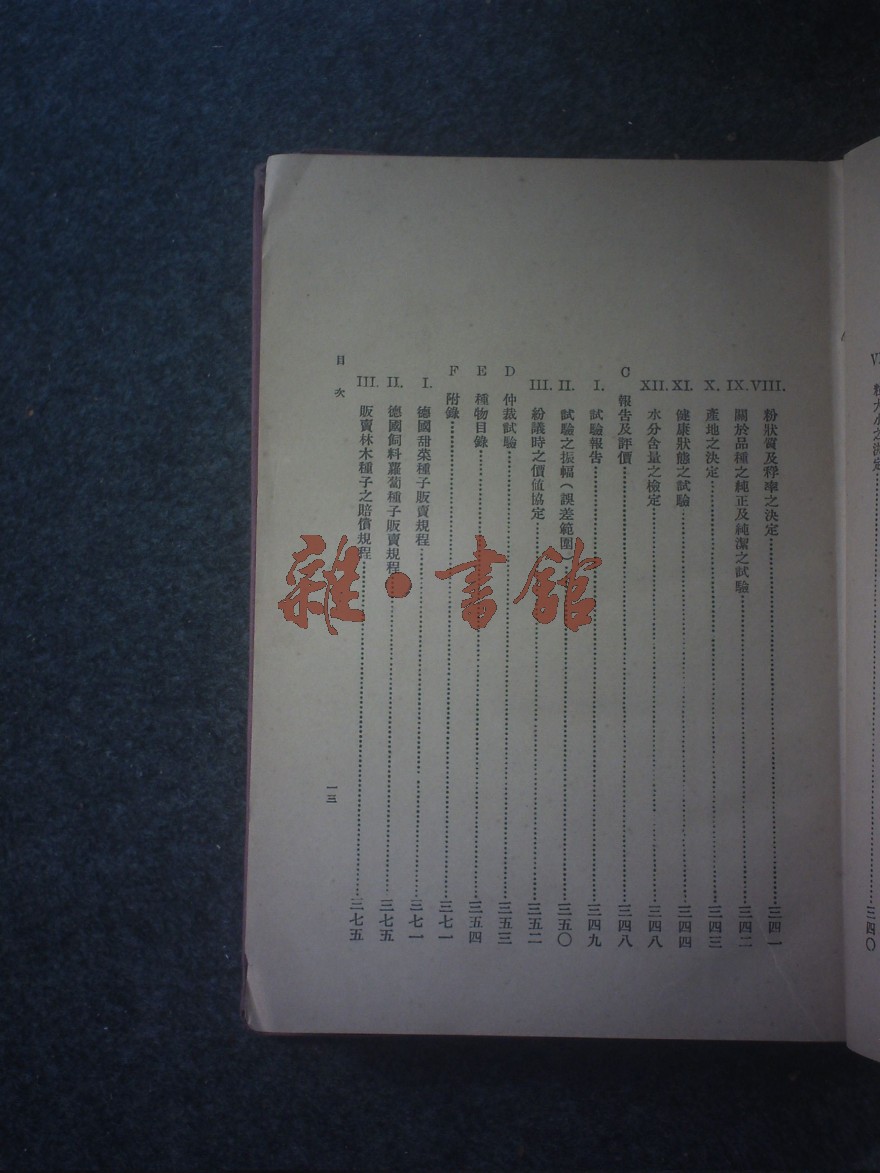 三四〇
VIII. 粉狀質及稃率之決定 三四一
IX. 關於品種之純正及純潔之試驗 三四二
X. 產地之決定 三四三
XI. 健康狀態之試驗 三四四
XII. 水分含量之檢定 三四八
C 報告及評價 三四八
I. 試驗報告 三四九
II. 試驗之振幅(誤差範圍) 三五〇
III. 紛議時之價值協定 三五二
D 仲裁試驗 三五三
E 種物目錄 三五四
F 附錄 三七一
I. 德國甜菜種子販賣規程 三七一
II. 德國飼料蘿蔔種子販賣規程 三七五
III. 販賣林木種子之賠償規程 三七五
目次
一三
雜·書館